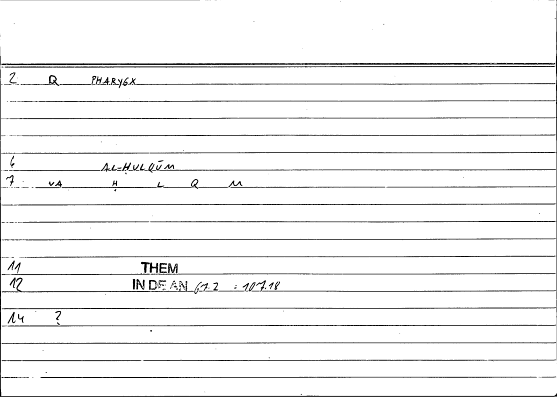 2 Q PHARYGX
6 AL-ḤULQŪM
7 VA Ḥ L Q M
11 THEM
12 IN DE AN 67.2 = 107.18
14 ?